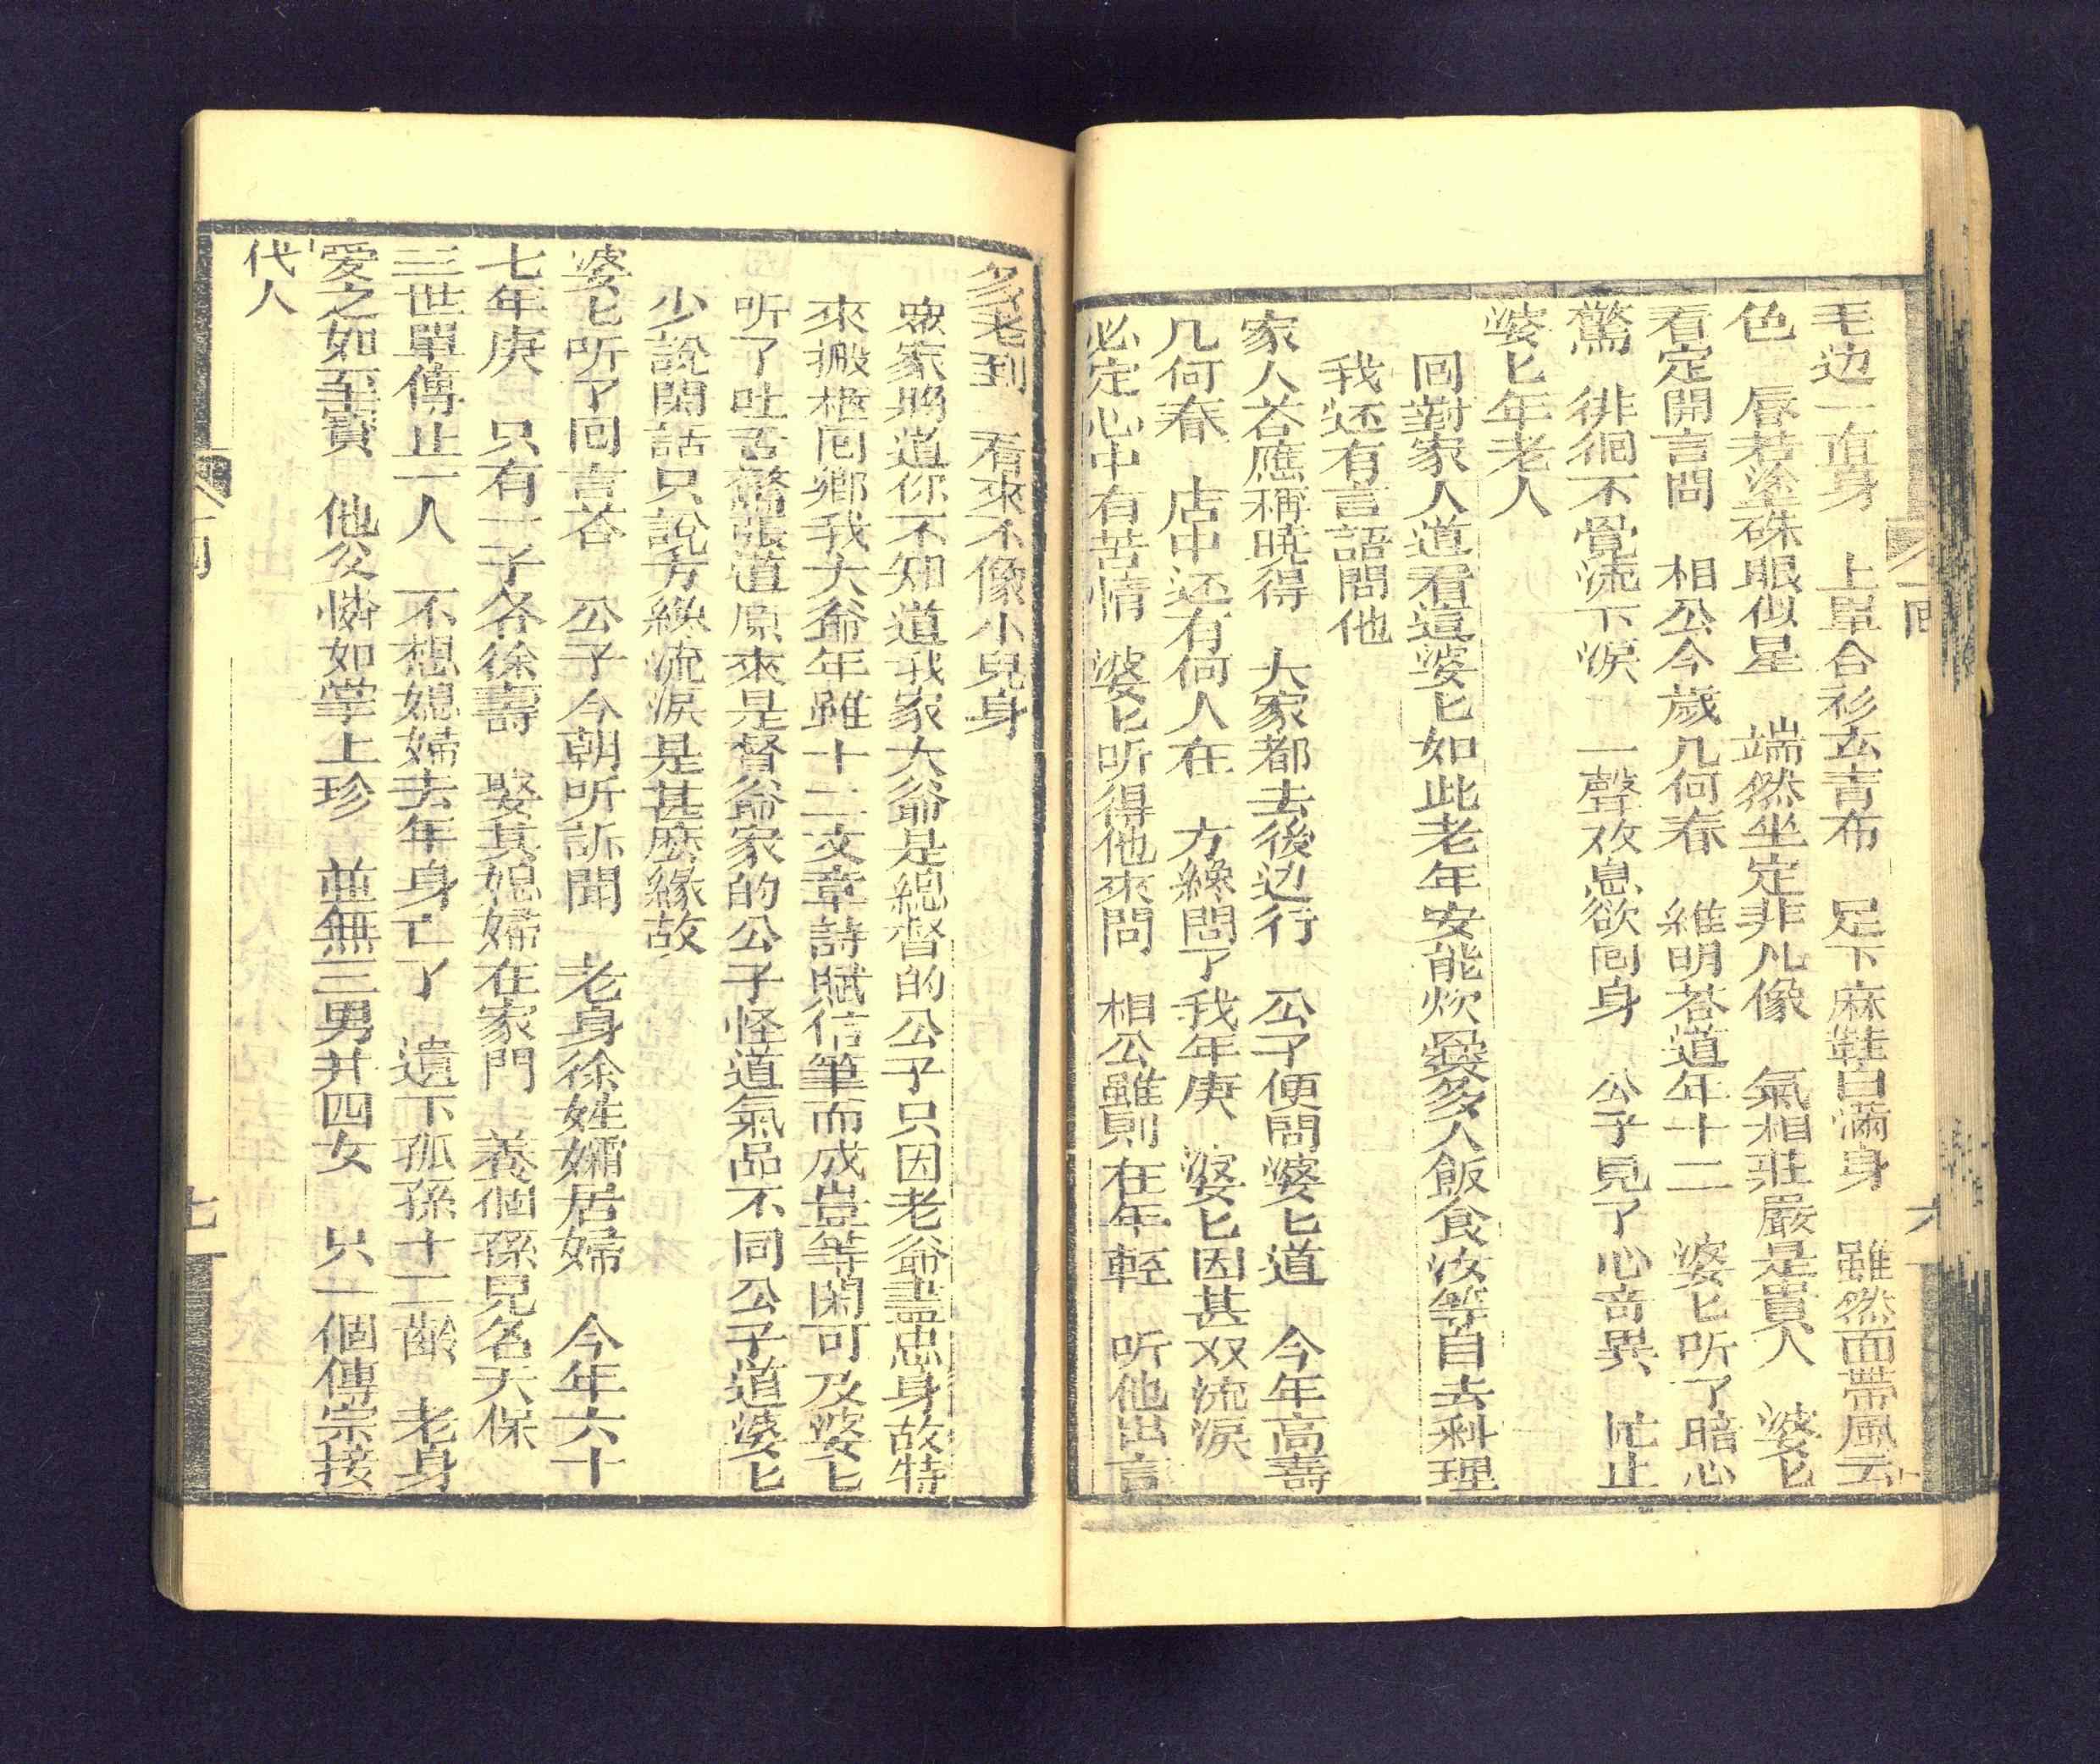 毛边一道身　上單合衫玄青布　足下麻鞋白滿身　雖然面帶風云
色　唇若塗硃眼似星　端然坐定非凡像　氣相莊嚴是貴人　婆匕
看定開言問　相公今歲几何春　維明荅道年十二　婆匕听了暗心
驚　徘徊不覺流下淚　一聲欢息欲囘身　公子見了心竒異　忙止
婆匕年老人
囘對家人道看這婆匕如此老年安能炊爨多人飯食汝等自去料理
我还有言語問他
家人荅應稱曉得　大家都去後边行　公子便問婆匕道　今年高壽
几何春　店中还有何人在　方纔問了我年庚　婆匕因甚双流淚
必定心中有苦情　婆匕听得他來問　相公雖則在年輕　听他出言
多老到　看來不像小兒身
衆家將道你不知道我家大爺是總督的公子只因老爺盡忠身故特
來搬柩囘鄉我大爺年雖十二文章詩賦信筆而成豈等閑可及婆匕
听了吐舌驚張道原來是督爺家的公子怪道氣品不同公子道婆匕
少說閑話只說方纔流淚是甚麽緣故
婆匕听了囘言荅　公子今朝听訴聞　老身徐姓孀居婦　今年六十
七年庚　只有一子名徐壽　娶其媳婦在家門　養個孫兒名天保
三世單傳止一人　不想媳婦去年身亡了　遺下孤孫十二齡　老身
愛之如至寶　他父憐如掌上珍　並無三男并四女　只一個傳宗接
代人
七